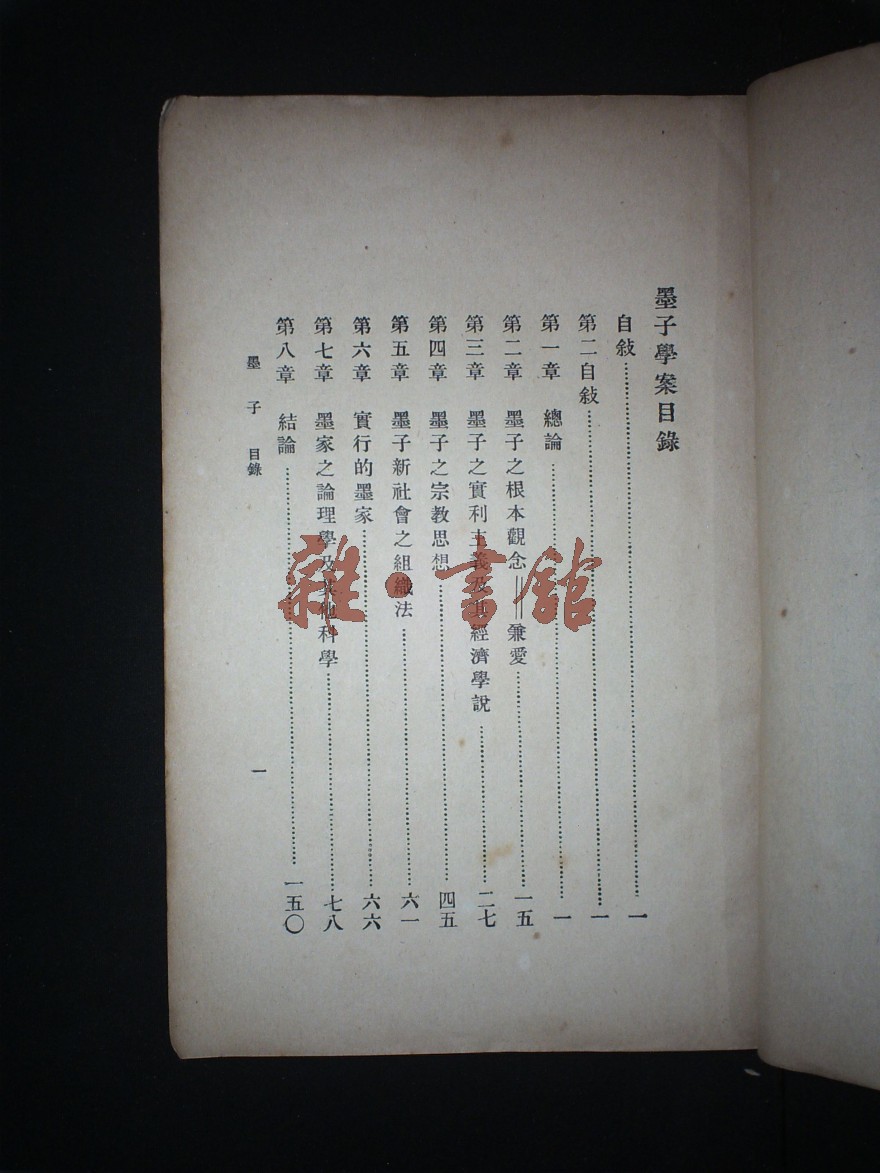 墨子學案目錄
自敍…………一
第二自敍…………一
第一章 總論…………一
第二章 墨子之根本觀念——兼愛…………一五
第三章 墨子之實利主義及其經濟學說…………二七
第四章 墨子之宗教思想…………四五
第五章 墨子新社會之組織法…………六一
第六章 實行的墨家…………六六
第七章 墨家之論理學及其他科學…………七八
第八章 結論…………一五〇
墨子 目錄 一
雜·書館